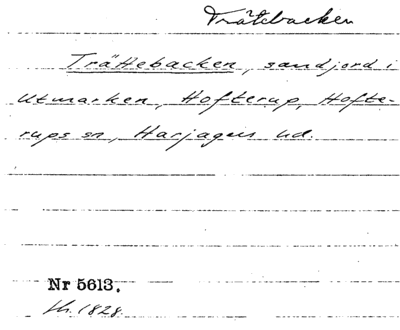 Trätebacken
Trättebacken, sandjord i
Utmarken, Hofterup, Hofte-
rups sn, Harjagers hd.
Nr 5613.
1828.